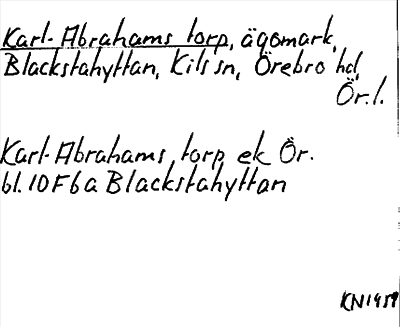 Karl-Abrahams torp, ägomark,
Blackstahyttan, Kils sn, Örebro hd,
Ör.l.
Karl-Abrahams torp ek Ör.
bl. 10F6a Blackstahyttan